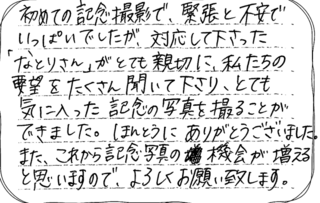 初めての記念撮影で、緊張と不安で
いっぱいでしたが、対応して下さった
「なとりさん」がとても親切に、私たちの
要望をたくさん聞いて下さり、とても
気に入った記念の写真を撮ることが
できました。ほんとうにありがとうございました。
また、これから記念写真の機会が増える
と思いますので、よろしくお願い致します。